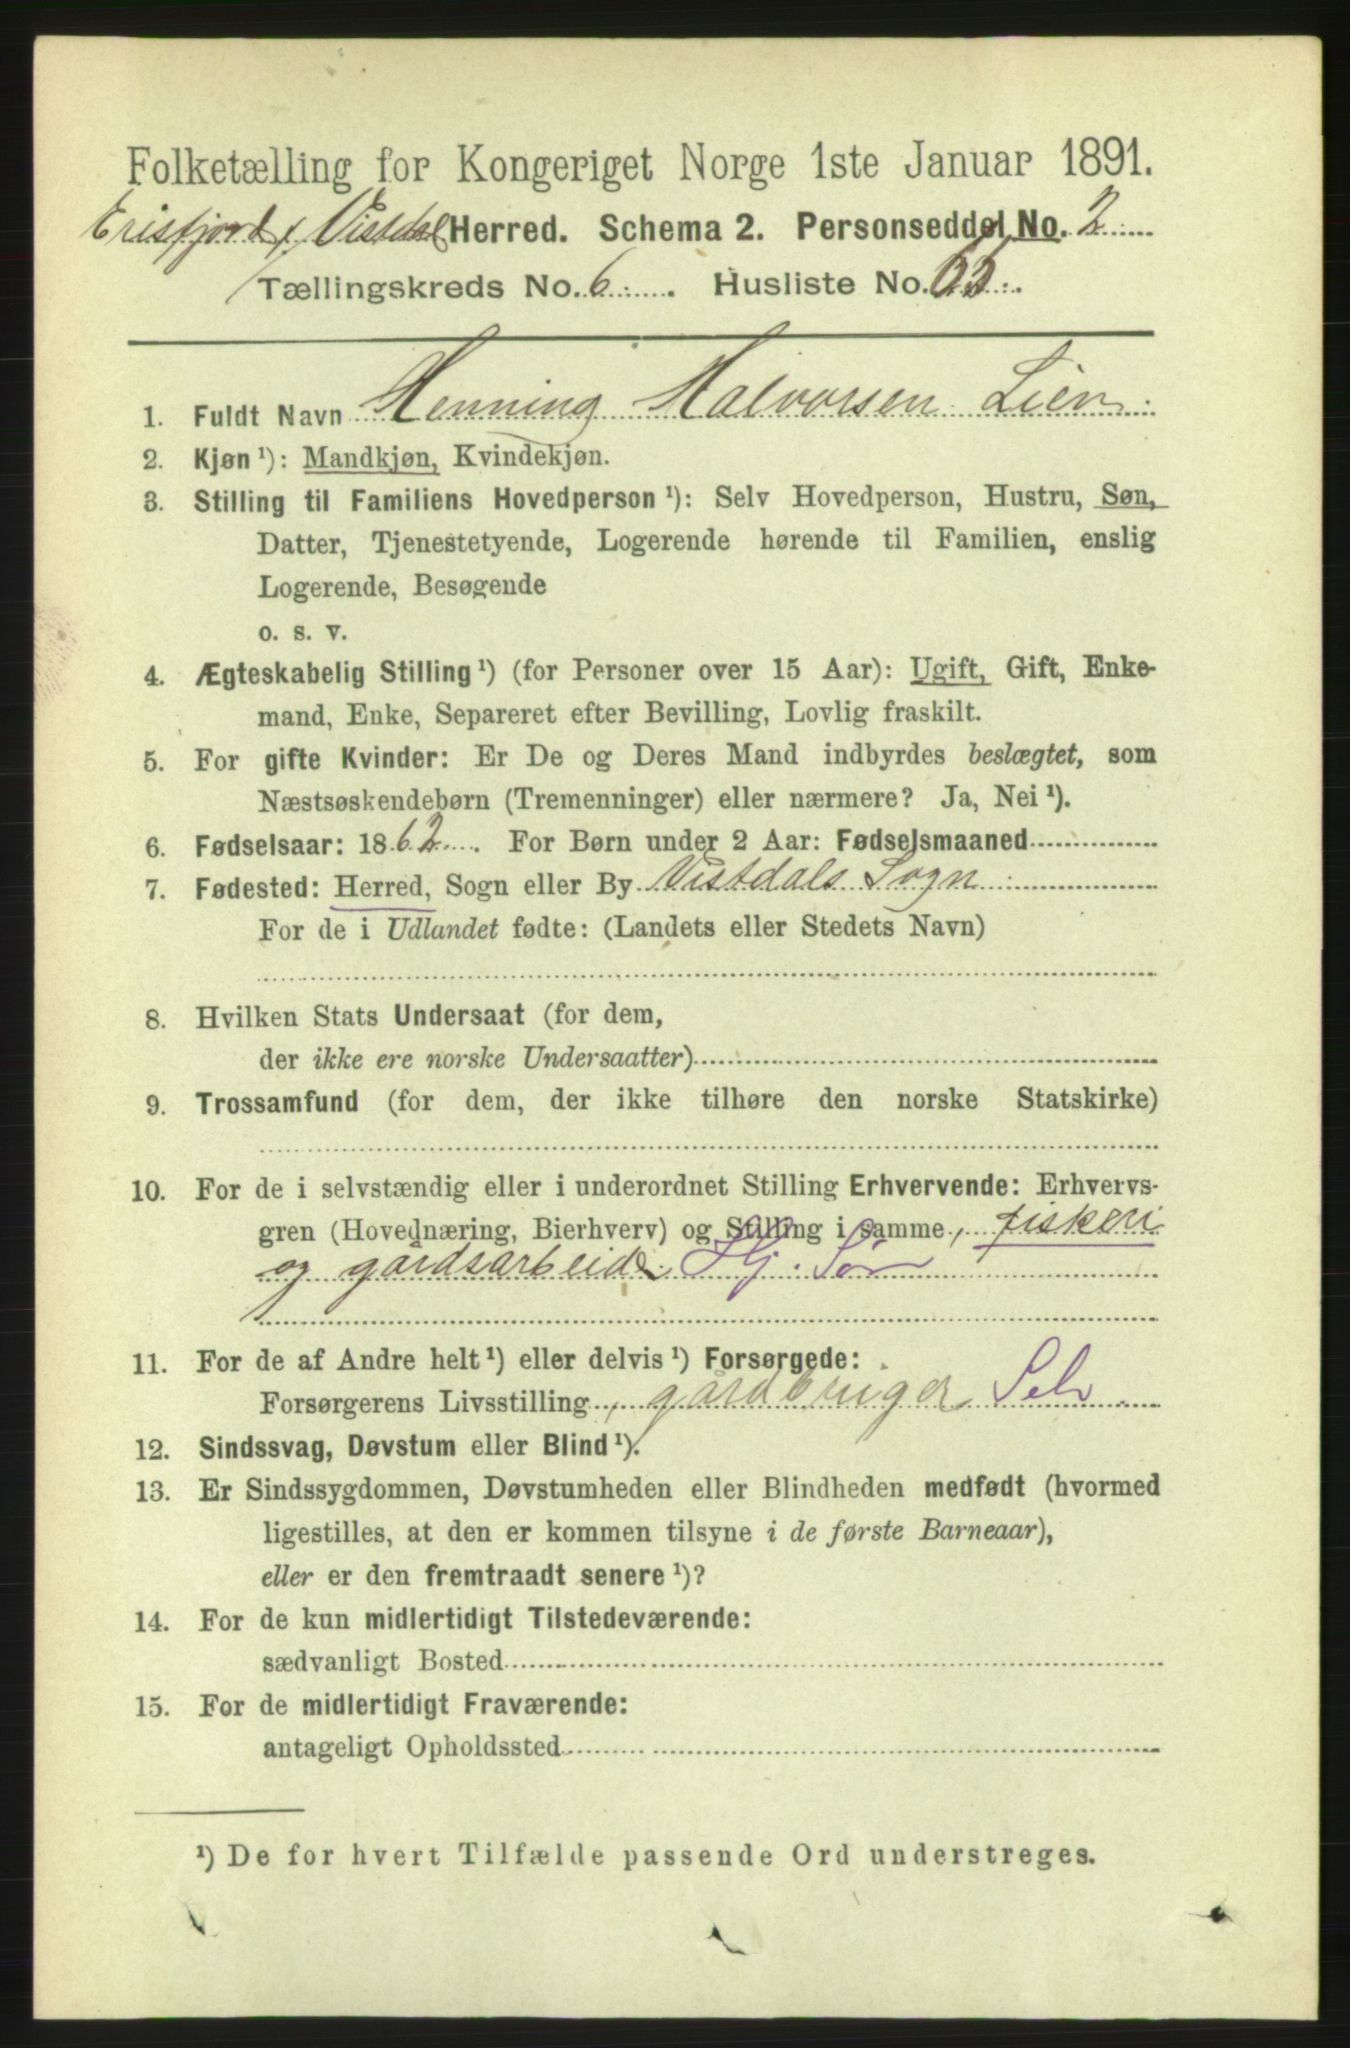 Folketælling for Kongeriget Norge 1ste Januar 1891.
Erisfjord & Vistdal Herred. Schema 2. Personseddel No. 2
Tællingskreds No. 6. Husliste No.
1. Fuldt Navn Henning Halvorsen Lien
2. Kjøn ¹): Mandkjøn, Kvindekjøn.
3. Stilling til Familiens Hovedperson ¹): Selv Hovedperson, Hustru, Søn,
Datter, Tjenestetyende, Logerende hørende til Familien, enslig
Logerende, Besøgende
o. s. v.
4. Ægteskabelig Stilling ¹) (for Personer over 15 Aar): Ugift, Gift, Enke-
mand, Enke, Separeret efter Bevilling, Lovlig fraskilt.
5. For gifte Kvinder: Er De og Deres Mand indbyrdes beslægtet, som
Næstsøskendebørn (Tremenninger) eller nærmere? Ja, Nei ¹).
6. Fødselsaar: 1862. For Børn under 2 Aar: Fødselsmaaned
7. Fødested: Herred, Sogn eller By Vistdals Sogn
For de i Udlandet fødte: (Landets eller Stedets Navn)
8. Hvilken Stats Undersaat (for dem,
der ikke ere norske Undersaatter)
9. Trossamfund (for dem, der ikke tilhøre den norske Statskirke)
10. For de i selvstændig eller i underordnet Stilling Erhvervende: Erhvervs-
gren (Hovednæring, Bierhverv) og Stilling i samme, fiskeri
og gårdsarbeide Hj. Søn
11. For de af Andre helt ¹) eller delvis ¹) Forsørgede:
Forsørgerens Livsstilling, gårdbruger Selv
12. Sindssvag, Døvstum eller Blind ¹).
13. Er Sindssygdommen, Døvstumheden eller Blindheden medfødt (hvormed
ligestilles, at den er kommen tilsyne i de første Barneaar),
eller er den fremtraadt senere ¹)?
14. For de kun midlertidigt Tilstedeværende:
sædvanligt Bosted
15. For de midlertidigt Fraværende:
antageligt Opholdssted
¹) De for hvert Tilfælde passende Ord understreges.